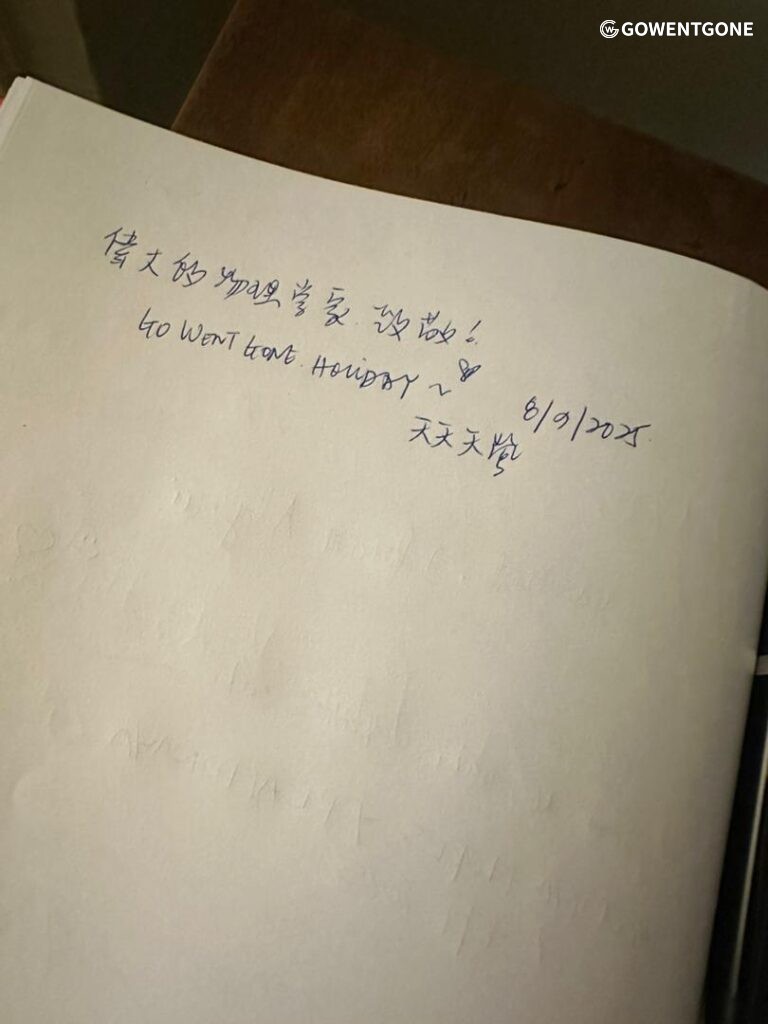 GOWENTGONE
偉大的物理学家 致敬!
GO WENT GONE. HOLIDAY ~
8/9/2025
天天天